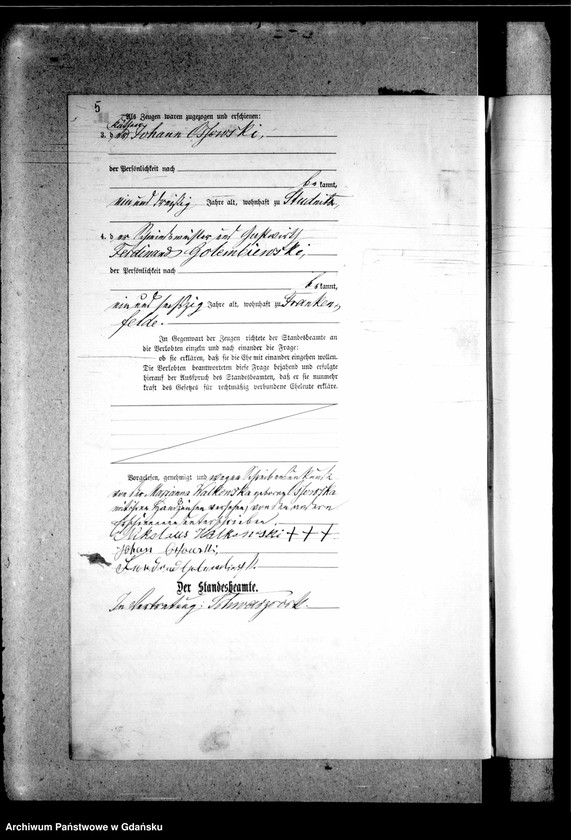 5
Als Zeugen waren zugezogen und erschienen:
3. der Käthner
Johann Ossowski,
der Persönlichkeit nach
be kannt,
ein und dreißig Jahre alt, wohnhaft zu Studnitz
4. der und Gastwirth
Ferdinand Golembiewski,
der Persönlichkeit nach
be kannt,
ein und sechszig Jahre alt, wohnhaft zu Franken-
felde.
In Gegenwart der Zeugen richtete der Standesbeamte an
die Verlobten einzeln und nach einander die Frage:
ob sie erklären, daß sie die Ehe mit einander eingehen wollen.
Die Verlobten beantworteten diese Frage bejahend und erfolgte
hierauf der Ausspruch des Standesbeamten, daß er sie nunmehr
kraft des Gesetzes für rechtmäßig verbundene Eheleute erkläre.
Vorgelesen, genehmigt und wegen Schreibensunkunde
von der Marianna Walkowska geborene Ossowska
mit ihrem Handzeichen versehen, von den andern
Erschienenen unterschrieben.
Nikolaus Walkowski +++
Johan Ossowski
Ferdinand Golembiewski
Der Standesbeamte.
In Vertretung:
Archiwum Państwowe w Gdańsku